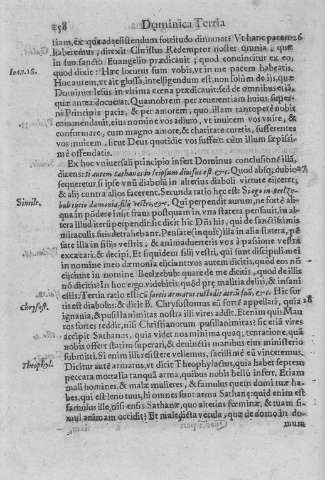 258 Dominica Tertia
tiam, ex qua adsistendum fortitudo dimanat: Vt hanc pacem 26
haberemus, direxit Christus Redemptor noster omnia, quæ
in suo sancto Euangelio prædicauit, quod conuincitur ex eo,
Ioan.16. quod dixit: Hæc locutus sum vobis, vt in me pacem habeatis.
Hoc autem, vt ait glossa, intelligendum est, non solùm de ijs, quæ
Dominus Iesus in vltima cœna prædicauit, sed de omnibus etiã,
quæ antea docuerat. Quamobrem per reuerentiam huius superni
Principis pacis, & per amorem, quo illam tantopere nobis
commendauit, eius nomine vos adiuro, vt inuicem vos vnire, &
conformare, cum magno amore, & charitate curetis, sufferentes
vos inuicem, sicut Deus quotidie vos suffert cùm illum sæpissimè
offendatis.
Ex hoc vniuersali principio infert Dominus conclusionẽ illã,
dicens: Si autem sathanas in seipsum diuisus est &c. Quod absq; dubio 27
sequeretur, si ipse vnũ diabolũ in alterius diaboli virtute eijceret,
& alij contra alios starent. Secunda ratio hęc est: Si ego in Beelzebub
Simile. eijcio dæmonia, filij vestri, &c.
qua in põdere inest fraus postquam in vna statera pensauit, in altera
illud iterũ perpendit: sic dicit hic Dñs his, qui de sanctissimis
miraculis suis detrahebant. Pensate (inquit) illa in alia statera,
excæcari, & decipi. Et siquidem filij vestri, qui sunt discipuli mei
in nomine meo dæmonia eiiciunt
eijcient in nomine Beelzebub: quare de me dicitis, quod de illis
nõ dicitis? In hoc ergo videbitis quòd præ malitia delis, & insani
estis. Tertia ratio est: Cũ fortis armatus custodit atriũ suũ, &c. Hic fortis
Chrysost. est diabolus: & dicit B. Chrysostomus eũ fortẽ appellari, quia 28
ignauia, & pusillanimitas nostra illi vires addit. Etenim quis Mauros
fortes reddit, nisi Christianorum pusillanimitas? sic etiã vires
accipit Sathanas, quia videt nos minima quaq; tentatione, quã
nobis offert statim superari, & deuinctis manibus eius ministerio
submitti. Si enim illi resistere vellemus, facillimè eũ vinceremus.
Theophyl. Dicitur autẽ armatus, vt dicit Theophylactus, quia habet septem
peccata mortalia tanquã arma, quibus nobis bellũ infert. Etiam
mali homines, & malæ mulieres, & famulus quem domi tuæ habes,
qui est leno tuus, hi omnes sunt arma Sathanæ: quid enim est
famulus ille, nisi ensis Sathanæ, quo alterius fœminæ, & tuam simul
animam occidit? Et maledicta vetula, quæ de domo in domum